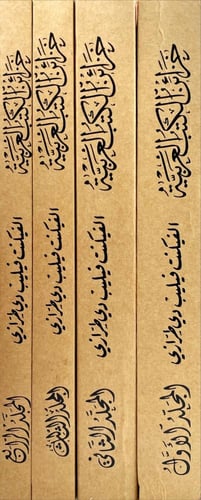 خزائن الكتب العربية
الفيكنت فيليب دي طرازي
المجلد الأول
خزائن الكتب العربية
الفيكنت فيليب دي طرازي
المجلد الثاني
خزائن الكتب العربية
الفيكنت فيليب دي طرازي
المجلد الثالث
خزائن الكتب العربية
الفيكنت فيليب دي طرازي
المجلد الرابع